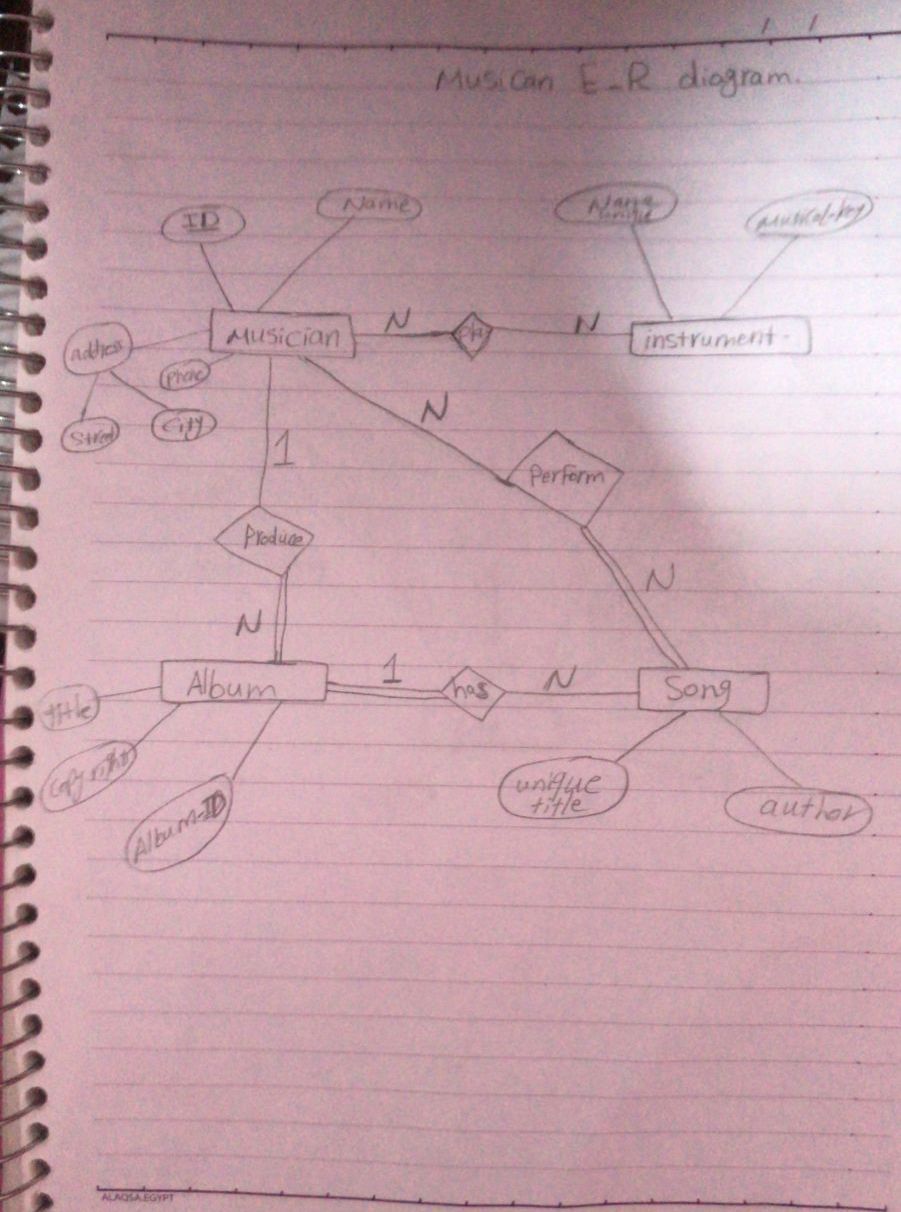 Musican E-R diagram.
ID
Name
Name
unique
Musical-key
Musician
N
N
instrument
address
phone
Street
City
N
1
Perform
Produce
N
N
Album
1
has
N
Song
title
Copy right
Album-ID
unique
title
author
ALAQSA.EGYPT